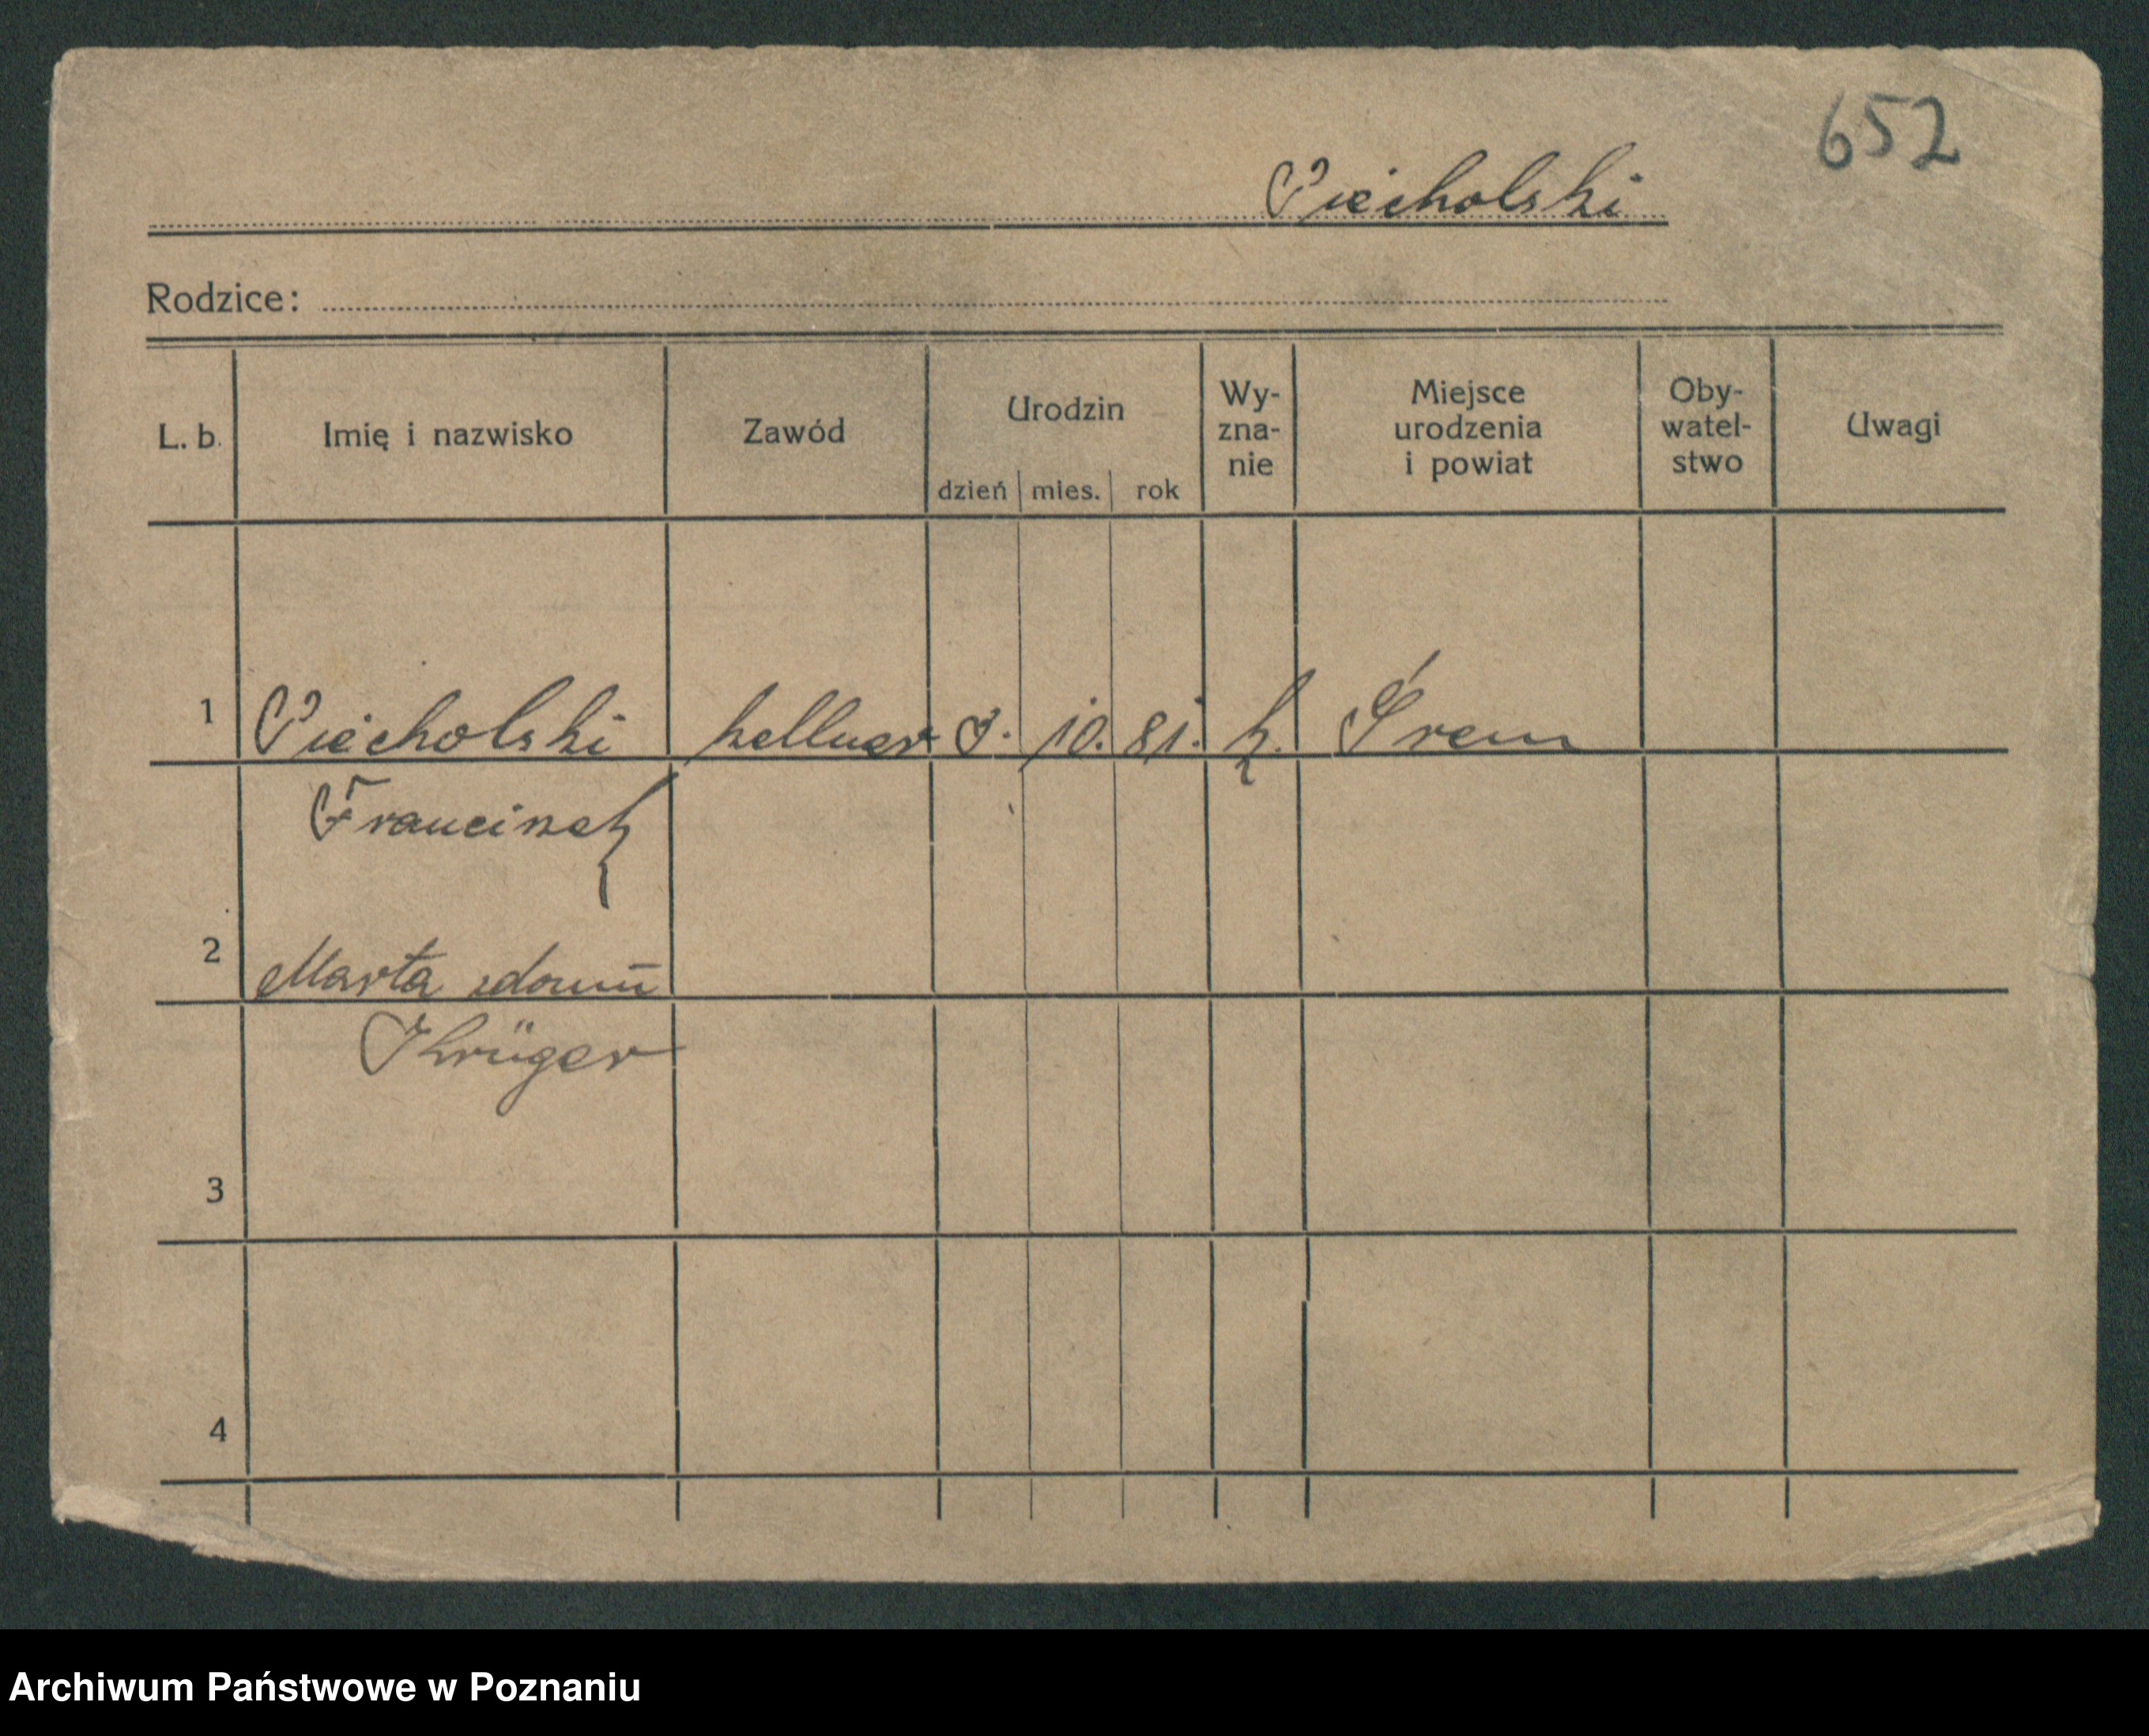 652
Piecholski
Rodzice:
L. b. Imię i nazwisko Zawód Urodzin dzień mies. rok Wy-zna-nie Miejsce urodzenia i powiat Oby-watel-stwo Uwagi
1 Piecholski kellner 3. 10. 81. k. Śrem
Franciszek
2 Marta zdomu
Krüger
3
4
Archiwum Państwowe w Poznaniu